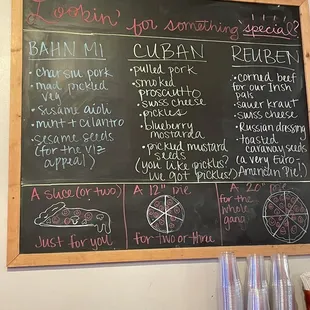 Lookin' for something special?
BAHN MI
• char siu pork
• mad pickled
veg
• sesame aioli
• mint + cilantro
• sesame seeds
(for the viz
appeal)
CUBAN
• pulled pork
• smoked
prosciutto
• swiss cheese
• pickles
• blueberry
mostarda
• pickled mustard
seeds
(you like pickles?
we got pickles!)
REUBEN
• corned beef
for our Irish
pals
• sauer kraut
• swiss cheese
• Russian dressing
• toasted
caraway seeds
(a very Euro-
American Pie!)
A slice (or two)
Just for you
A 12" pie
for two or three
A 20" pie
for the
whole
gang